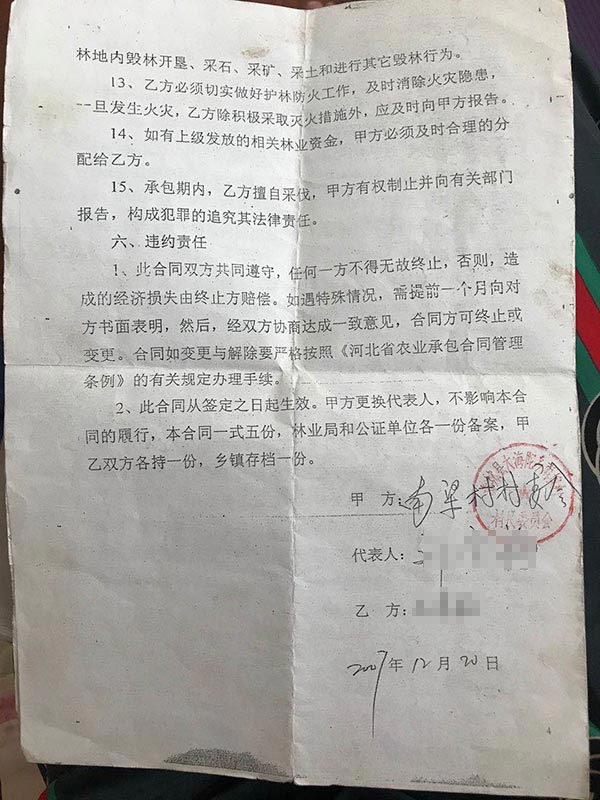 林地内毁林开垦、采石、采矿、采土和进行其它毁林行为。
13、乙方必须切实做好护林防火工作，及时消除火灾隐患，
一旦发生火灾，乙方除积极采取灭火措施外，应及时向甲方报告。
14、如有上级发放的相关林业资金，甲方必须及时合理的分
配给乙方。
15、承包期内，乙方擅自采伐，甲方有权制止并向有关部门
报告，构成犯罪的追究其法律责任。
六、违约责任
1、此合同双方共同遵守，任何一方不得无故终止，否则，造
成的经济损失由终止方赔偿。如遇特殊情况，需提前一个月向对
方书面表明，然后，经双方协商达成一致意见，合同方可终止或
变更。合同如变更与解除要严格按照《河北省农业承包合同管理
条例》的有关规定办理手续。
2、此合同从签定之日起生效。甲方更换代表人，不影响本合
同的履行，本合同一式五份，林业局和公证单位各一份备案，甲
乙双方各持一份，乡镇存档一份。
甲 方：南梁村村委会
县大海陀乡
村民委员会
代表人：
乙 方：
2007年12月20日